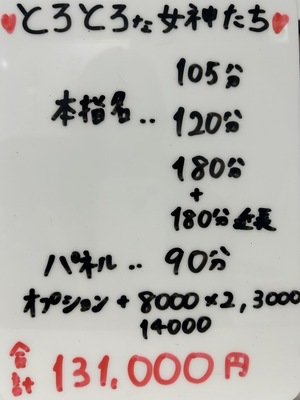 ♥とろとろな女神たち♥
105分
本指名‥120分
180分
+
180分延長
パネル‥90分
オプション+8000×2,3000
14000
合計 131,000円